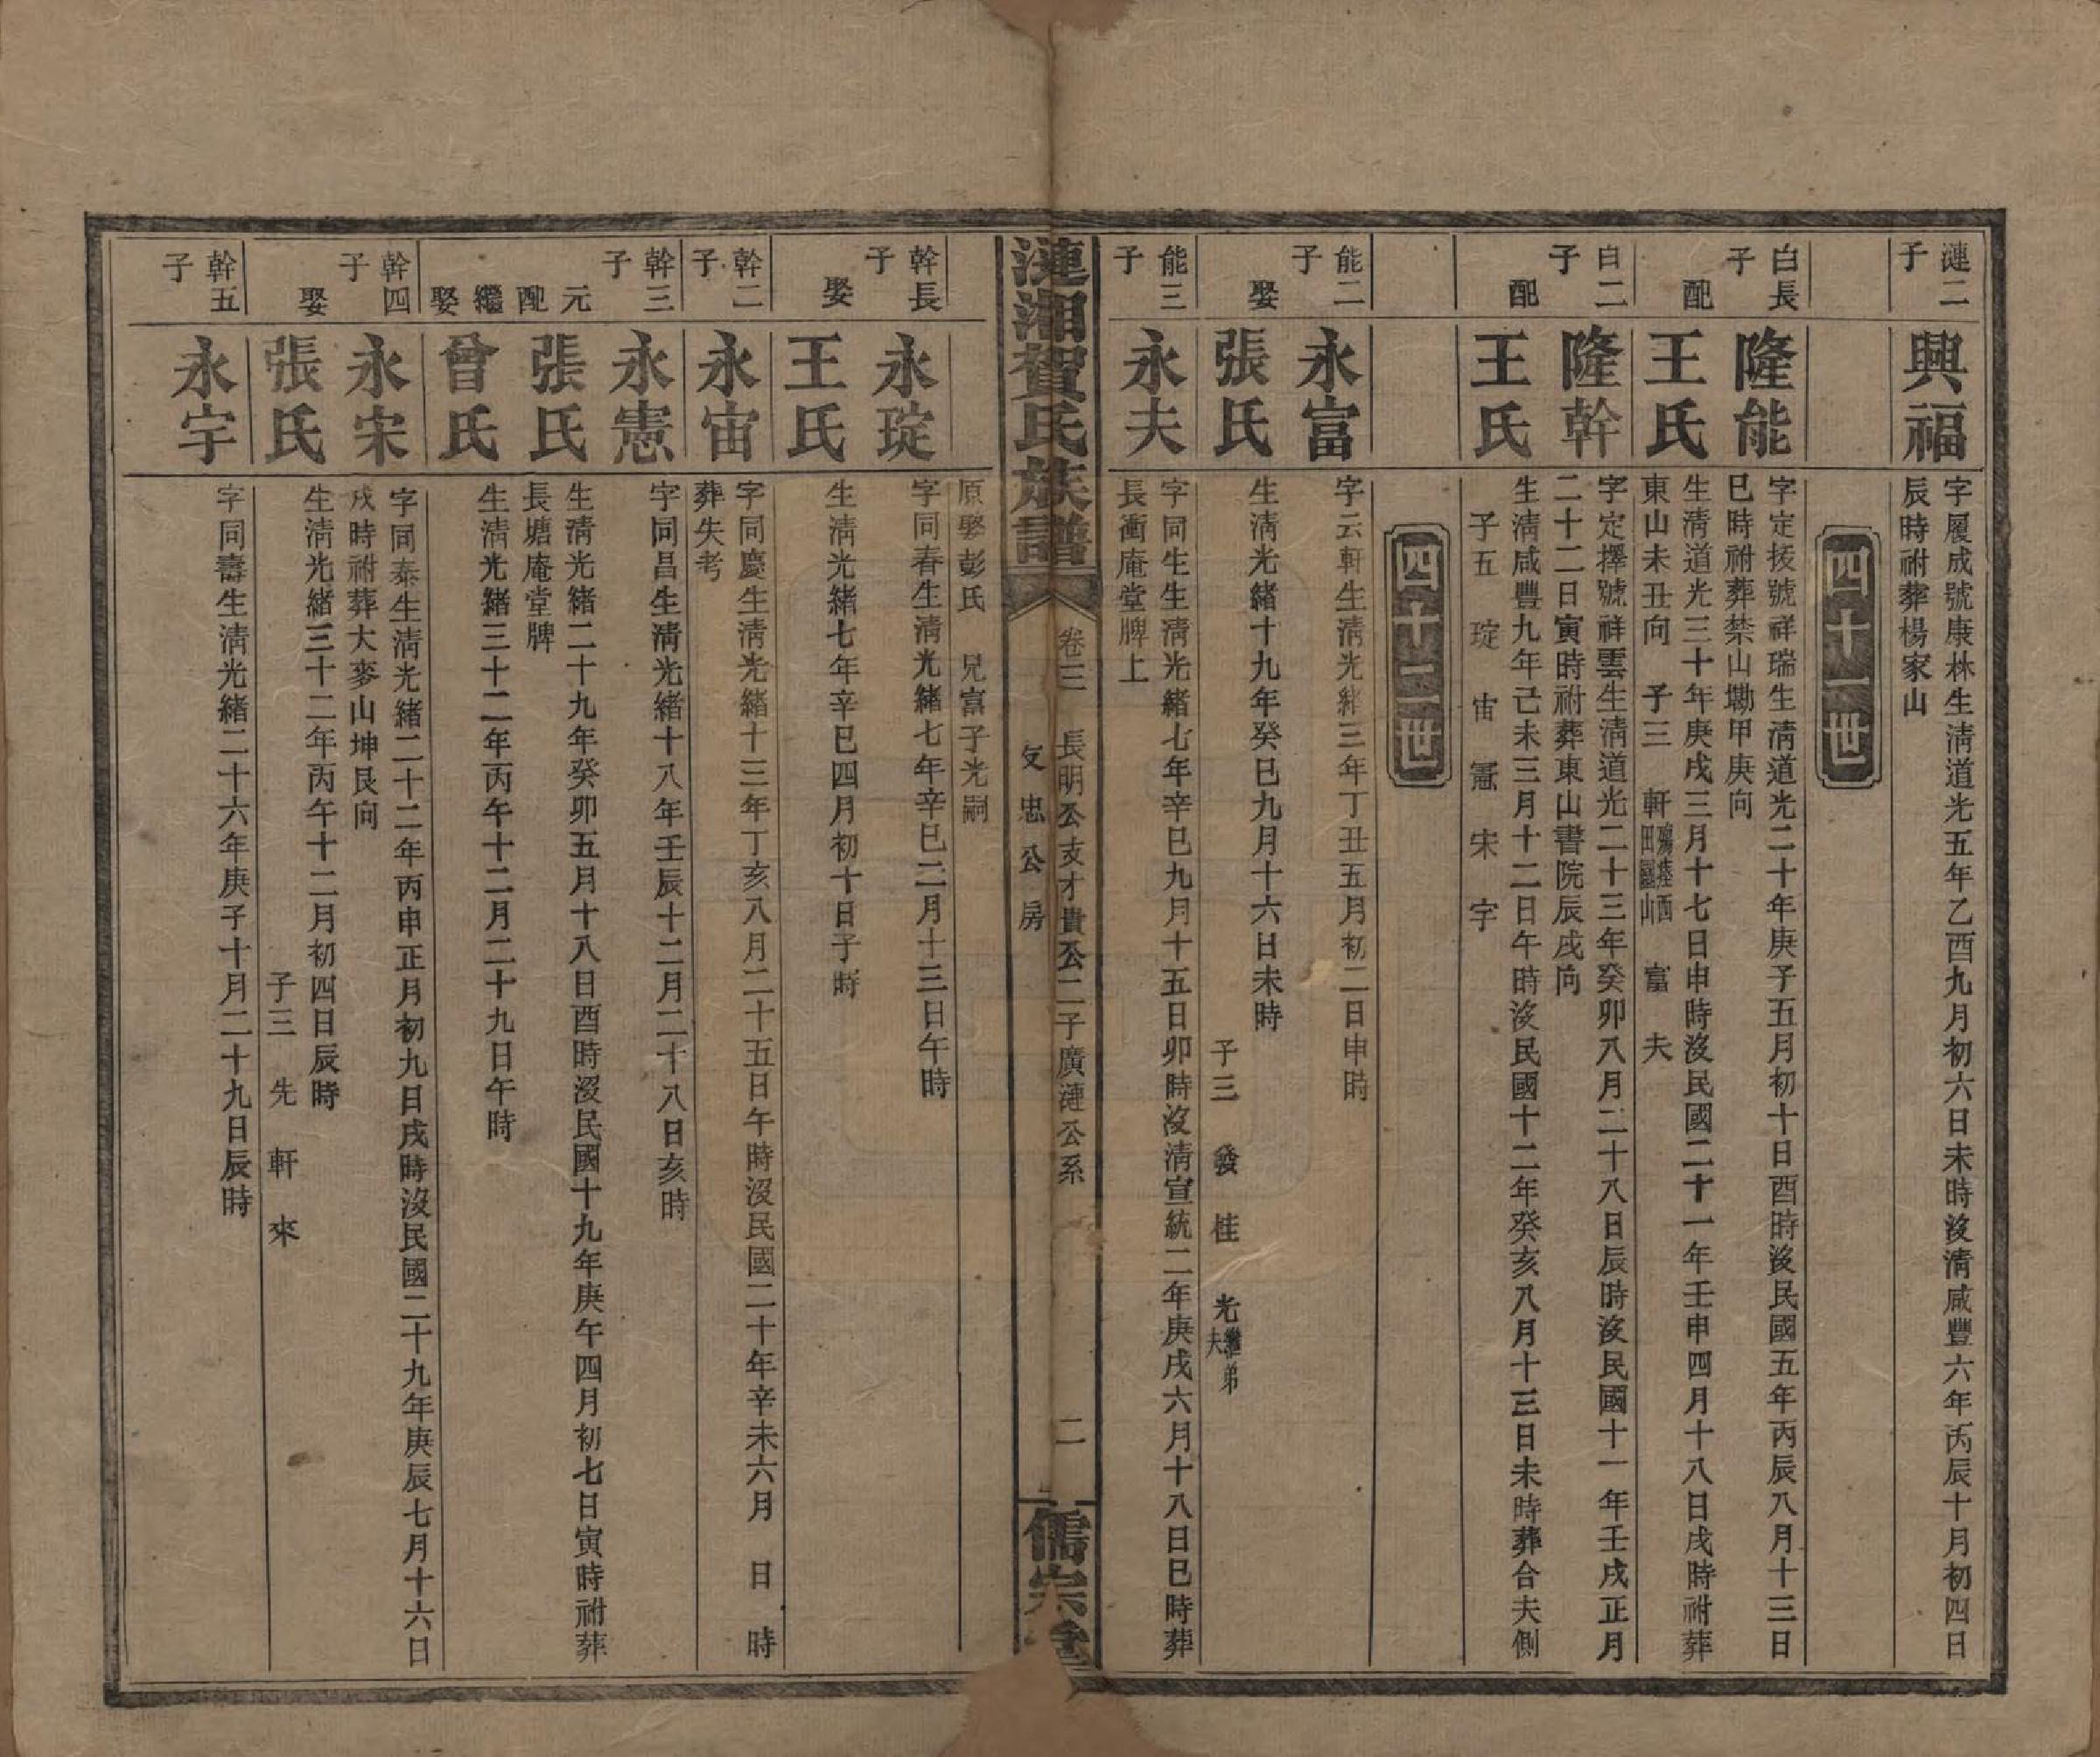 漣二子
興福
字履成號康林生淸道光五年乙酉九月初六日未時沒淸咸豐六年丙辰十月初四日
辰時祔葬楊家山
四十一世
白長子
隆能
字定抜號祥瑞生淸道光二十年庚子五月初十日酉時沒民國五年丙辰八月十三日
巳時祔葬禁山塅甲庚向
配
王氏
生淸道光三十年庚戌三月十七日申時沒民國二十一年壬申四月十八日戌時祔葬
東山未丑向 子三 軒 富 夫
白二子
隆幹
字定擇號祥雲生淸道光二十三年癸卯八月二十八日辰時沒民國十一年壬戌正月
二十二日寅時祔葬東山書院辰戌向
配
王氏
生淸咸豐九年己未三月十二日午時沒民國十二年癸亥八月十三日未時葬合夫側
子五 琔 宙 憲 宋 宇
四十二世
能二子
永富
字云軒生淸光緒三年丁丑五月初二日申時
娶
張氏
生淸光緒十九年癸巳九月十六日未時
子三 發 桂 光繼弟夫
能三子
永夫
字同生生淸光緒七年辛巳九月十五日卯時沒淸宣統二年庚戌六月十八日巳時葬
長衝庵堂牌上
漣湘賀氏族譜
卷三 長明公支才貴公二子廣漣公系
文忠公房
二
儒宗
原娶彭氏 兄富子光嗣
幹長子
永琔
字同春生淸光緒七年辛巳二月十三日午時
娶
王氏
生淸光緒七年辛巳四月初十日子時
幹二子
永宙
字同慶生淸光緒十三年丁亥八月二十五日午時沒民國二十年辛未六月 日 時
葬失考
幹三子
永憲
字同昌生淸光緒十八年壬辰十二月二十八日亥時
元配
張氏
生淸光緒二十九年癸卯五月十八日酉時沒民國十九年庚午四月初七日寅時祔葬
長塘庵堂牌
繼娶
曾氏
生淸光緒三十二年丙午十二月二十九日午時
幹四子
永宋
字同泰生淸光緒二十二年丙申正月初九日戌時沒民國二十九年庚辰七月十六日
戌時祔葬大麥山坤艮向
娶
張氏
生淸光緒三十二年丙午十二月初四日辰時
子三 先 軒 來
幹五子
永宇
字同壽生淸光緒二十六年庚子十月二十九日辰時